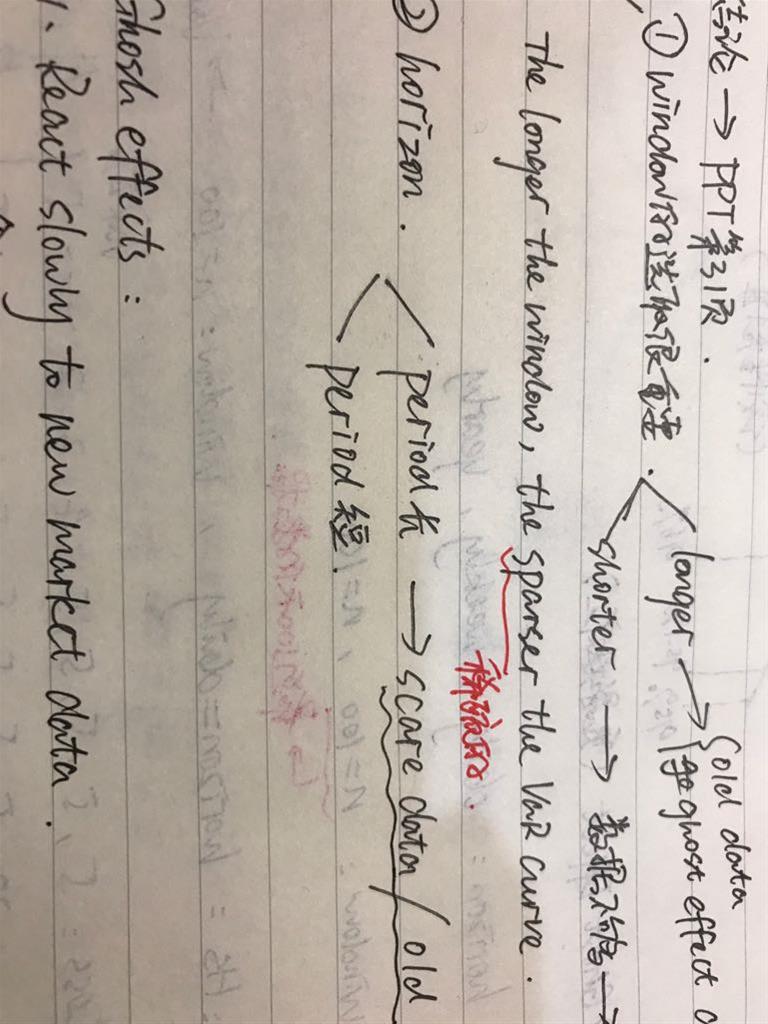 结论 → PPT第31页.
① window的选取很重要. longer → old data
ghost effect
shorter → 数据不够 →
The longer the window, the sparser the VaR curve.
稀疏的.
② horizon. period长 → scare data / old
period短.
Ghosh effects:
1. React slowly to new market data.